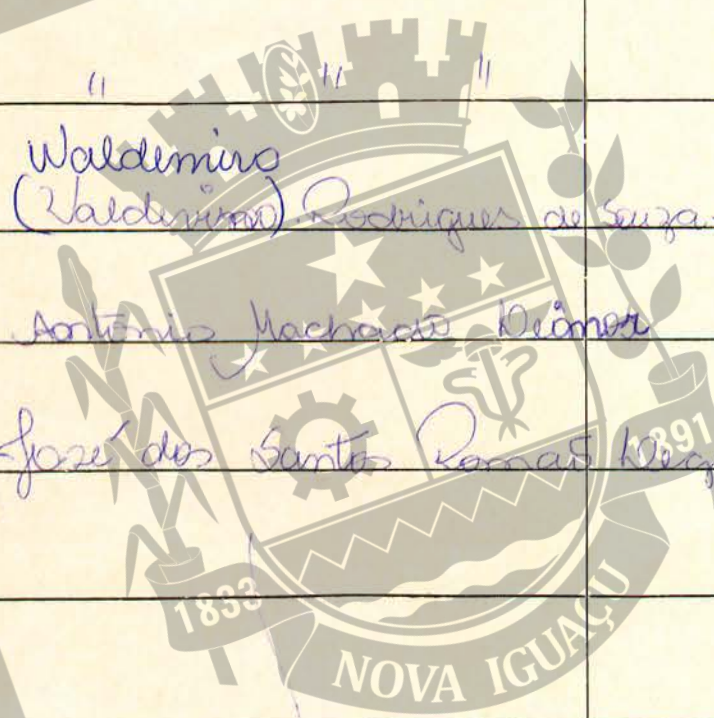 " " "
Waldemiro
(Valdemiro) Rodrigues de Souza
Antônio Machado
José dos Santos Romão
1833
1891
NOVA IGUAÇU